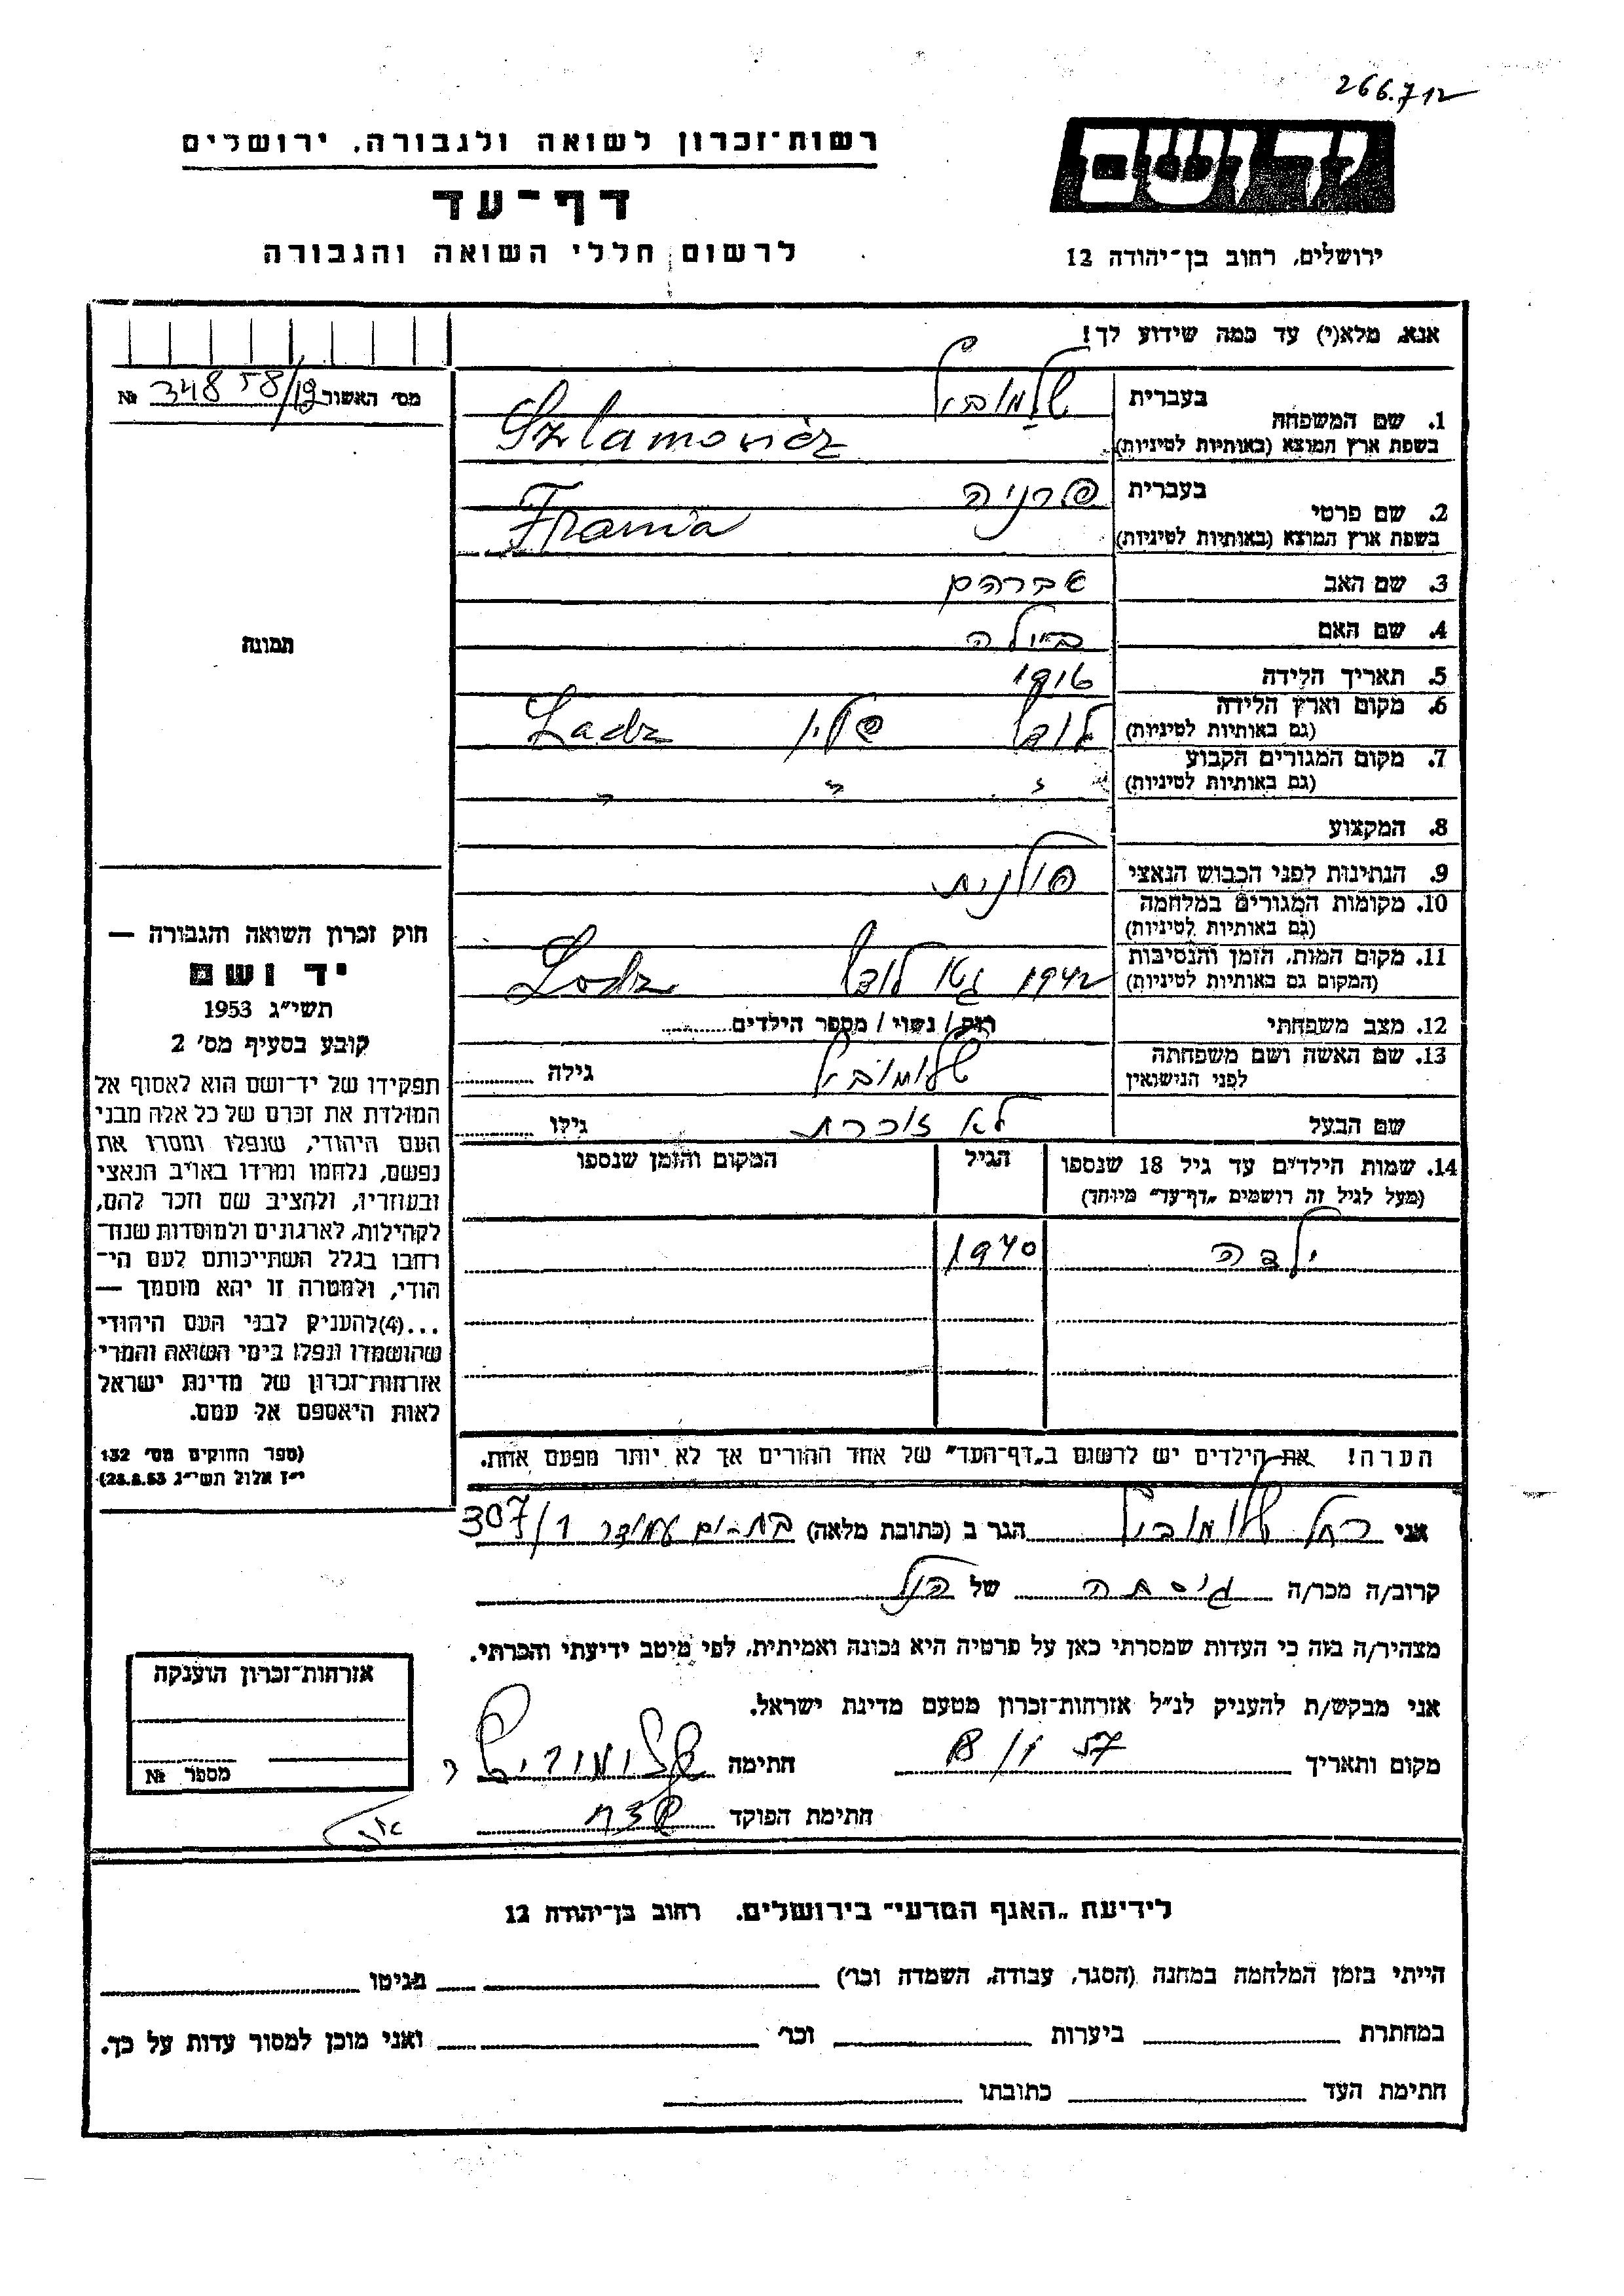 266.712
רשות־זכרון לשואה ולגבורה, ירושלים
דף־עד
לרשום חללי השואה והגבורה
יד ושם
ירושלים, רחוב בן־יהודה 12
אנא, מלא(י) עד כמה שידוע לך!
מס' האשור 34858/12 №
תמונה
1. שם המשפחה
בעברית שלמוביץ
בשפת ארץ המוצא (באותיות לטיניות) Szlamovicz
2. שם פרטי
בעברית פרניה
בשפת ארץ המוצא (באותיות לטיניות) Frania
3. שם האב אברהם
4. שם האם ביילה
5. תאריך הלידה 1916
6. מקום וארץ הלידה
(גם באותיות לטיניות) לודז פולין Lodz
7. מקום המגורים הקבוע
(גם באותיות לטיניות) " " "
8. המקצוע
9. הנתינות לפני הכבוש הנאצי פולנית
10. מקומות המגורים במלחמה
(גם באותיות לטיניות)
11. מקום המות, הזמן והנסיבות
(המקום גם באותיות לטיניות) 1942 גטו לודז Lodz
12. מצב משפחתי רווק / נשוי / מספר הילדים
13. שם האשה ושם משפחתה
לפני הנישואין שלמוביץ גילה
שם הבעל לא זוכרת גילו
14. שמות הילדים עד גיל 18 שנספו הגיל המקום והזמן שנספו
(מעל לגיל זה רושמים „דף־עד" מיוחד)
ילדה 1940
הערה! את הילדים יש לרשום ב„דף־העד" של אחד ההורים אך לא יותר מפעם אחת.
חוק זכרון השואה והגבורה —
יד ושם
תשי"ג 1953
קובע בסעיף מס' 2
תפקידו של יד־ושם הוא לאסוף אל
המולדת את זכרם של כל אלה מבני
העם היהודי, שנפלו ומסרו את
נפשם, נלחמו ומרדו באויב הנאצי
ובעוזריו, ולהציב שם וזכר להם,
לקהילות, לארגונים ולמוסדות שנח־
רבו בגלל השתייכותם לעם הי־
הודי, ולמטרה זו יהא מוסמך —
...(4) להעניק לבני העם היהודי
שהושמדו ונפלו בימי השואה והמרי
אזרחות־זכרון של מדינת ישראל
לאות היאספם אל עמם.
(ספר החוקים מס' 132
י"ז אלול תשי"ג 28.8.53)
אני רחל שלומוביץ הגר ב (כתובת מלאה) בת־ים עמידר 307/1
קרוב/ה מכר/ה גיסתה של הנ"ל
מצהיר/ה בזה כי העדות שמסרתי כאן על פרטיה היא נכונה ואמיתית, לפי מיטב ידיעתי והכרתי.
אני מבקש/ת להעניק לנ"ל אזרחות־זכרון מטעם מדינת ישראל.
מקום ותאריך 8/V 57 חתימה שלומוביץ ר
חתימת הפוקד
אזרחות־זכרון הוענקה
מספר №
לידיעת „האגף המדעי" בירושלים, רחוב בן־יהודה 12
הייתי בזמן המלחמה במחנה (הסגר, עבודה, השמדה וכו') בגיטו
במחתרת ביערות וכו' ואני מוכן למסור עדות על כך.
חתימת העד כתובתו